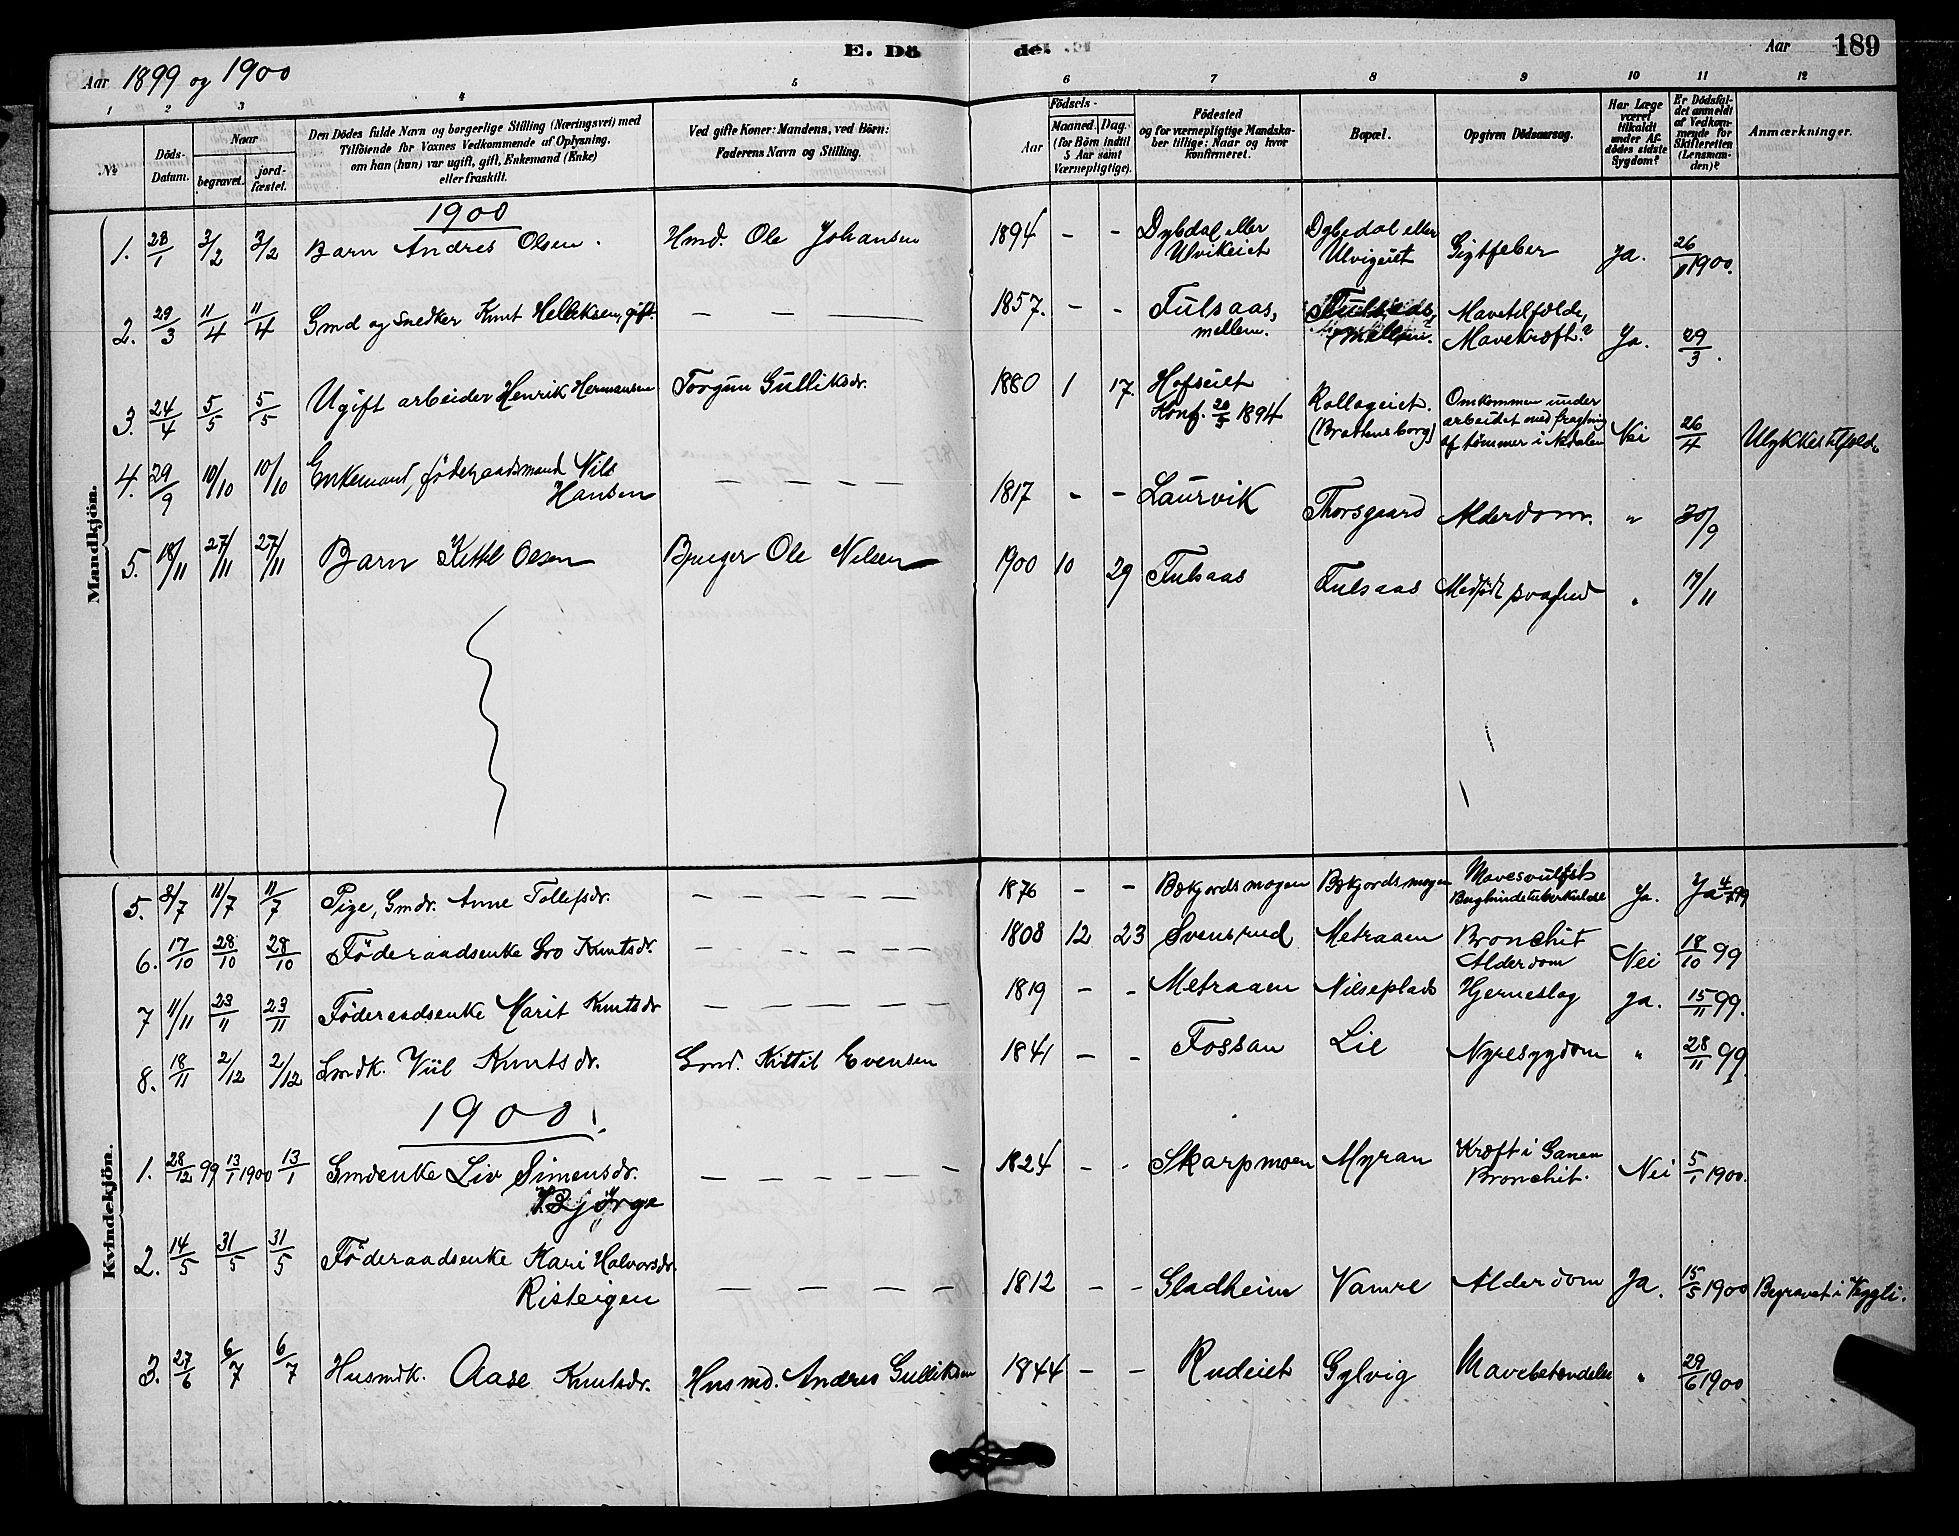 E. Dö de.
Aar 1899 og 1900
Aar 189
1 2 3 4 5 6 7 8 9 10 11 12
№
Döds-Datum.
Naar
begravet.
jord-fæstet.
Den Dödes fulde Navn og borgerlige Stilling (Næringsvei) med
Tilföiende for Voxnes Vedkommende af Oplysning,
om han (hun) var ugift, gift, Enkemand (Enke)
eller fraskilt.
Ved gifte Koner: Mandens, ved Börn:
Faderens Navn og Stilling.
Födsels-
Aar
Maaned. Dag.
(for Börn indtil
5 Aar samt
Værnepligtige).
Födested
og for værnepligtige Mandska-
ber tillige: Naar og hvor
konfirmeret.
Bopæl.
Opgiven Dödsaarsag.
Har Læge
været
tilkaldt
under Af-
dödes sidste
Sygdom?
Er Dödsfal-
det anmeldt
af Vedkom-
mende for
Skifteretten
(Lensman-
den)?
Anmærkninger.
Mandkjön.
1900
1. 28/1 3/2 3/2 Barn Andres Olsen. Hmd. Ole Johansen 1894 - - Dybdal eller Ulvikeiet Dybedal eller Ulvigeiet Gigtfeber Ja. 26/1 1900.
2. 29/3 11/4 11/4 Gmd og Snedker Knut Helliksen, gift. — — — 1857. - - Fulsaas, mellem. Mavetilfælde, Mavekræft? Ja. 29/3.
3. 24/4 5/5 5/5 Ugift arbeider Henrik Hermansen Torgun Gulliksdr. 1880 1 17 Hofseiet Konf. 20/5 1894 Rollageiet. (Brattensborg) Omkommen under arbeidet med fragtning af tømmer i Nei 26/4 Ulykkestilfælde
4. 29/9 10/10 10/10 Enkemand, føderaadsmand Nils Hansen — — — — 1817 - - Laurvik Thorsgaard Alderdom. " 30/9
5. 18/11 27/11 27/11 Barn Kittil Olsen Bruger Ole Nilsen 1900 10 29 Fulsaas Fulsaas Medfødt svaghed " 19/11
Kvindekjön.
5. 8/7 11/7 11/7 Pige, Gmdr. Anne Tollefsdr. — — — — — 1876 - - Bækjordsmogen Bækjordsmogen Mavesvulst Bughindetuberkulose Ja. Ja
6. 17/10 28/10 28/10 Föderaadsenke Gro Knutsdr. — — — — 1808 12 23 Svensrud Metraaen Bronchit Alderdom Nei 18/10 99
7 11/11 23/11 23/11 Føderaadsenke Marit Knutsdr — — — — — 1819 - - Metraaen Nilseplads Hjerneslag Ja. 15/11 99.
8. 18/11 2/12 2/12 Gmdk. Viil Knutsdr. Gmd. Kittil Evensen 1841 - - Fossan Lie Nyresygdom " 28/11 99.
1900.
1. 28/12 99 13/1 1900 13/1 Gmdenke Liv Simensdr. Bjørge — — — — — 1824 - - Skarpmoen Myran Kræft i Ganen Bronchit. Nei 5/1 1900.
2. 14/5 31/5 31/5 Föderaadsenke Kari Halvorsdr. Risteigen — — — — — 1812 - - Gladheim Vamre Alderdom Ja. 15/5 1900 Begravet i Veggli.
3. 27/6 6/7 6/7 Husmdk. Aase Knutsdr. Husmd. Andres Gulliksen 1844 - - Rudeiet Gylvig Mavebetændelse " 29/6 1900